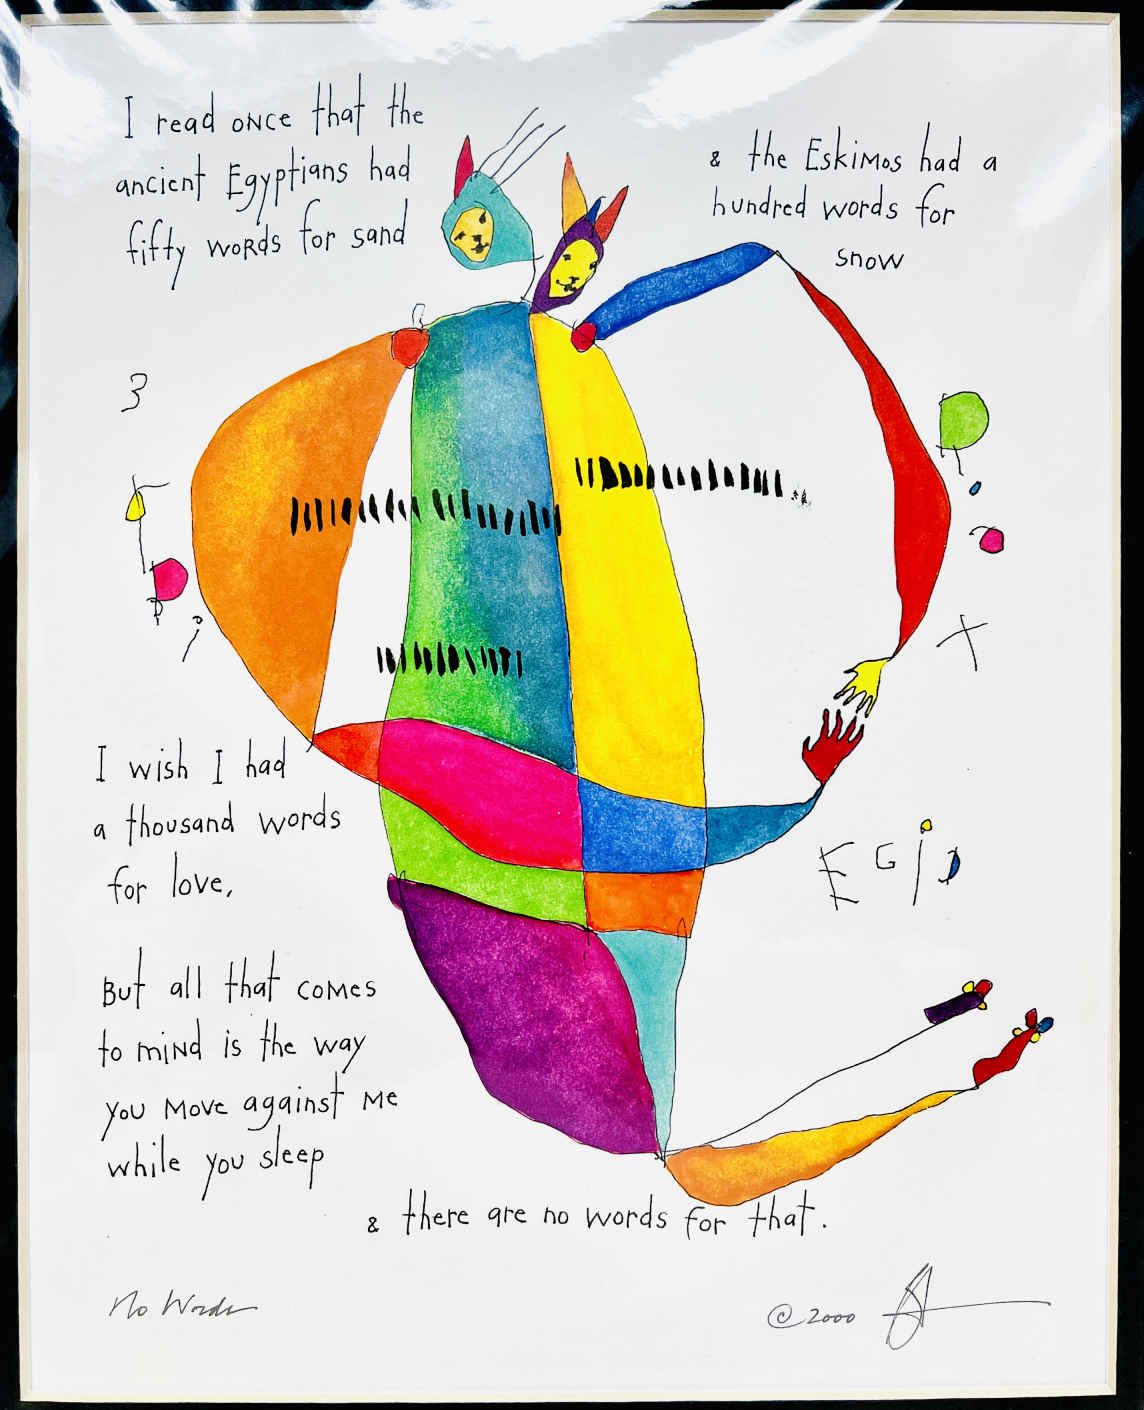 I read once that the
ancient Egyptians had
fifty words for sand
& the Eskimos had a
hundred words for
snow
3
I wish I had
a thousand words
for love,
But all that comes
to mind is the way
you move against me
while you sleep
& there are no words for that.
No Words
© 2000